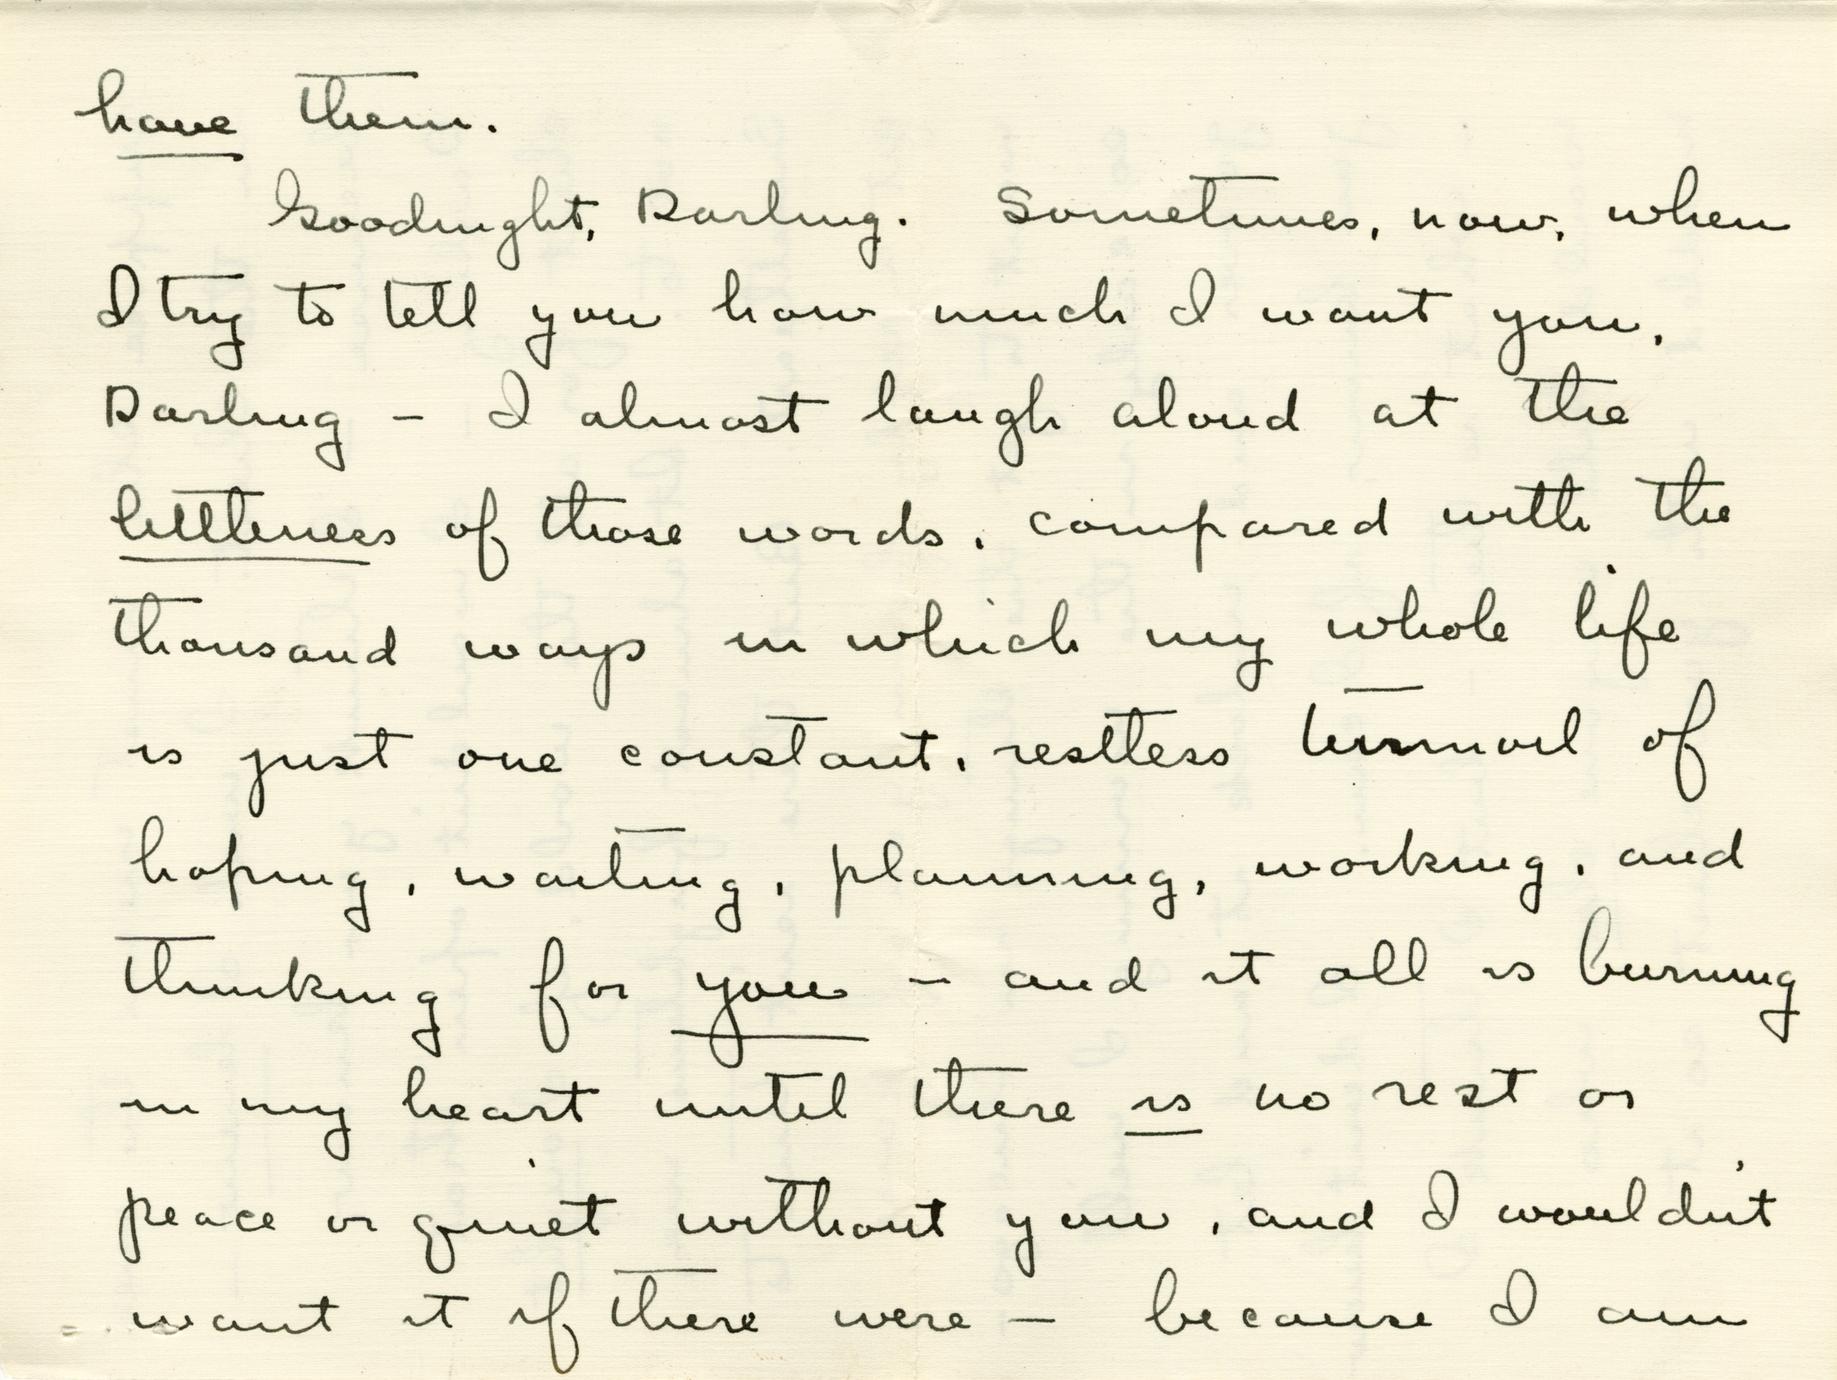 have them.
Goodnight, Darling. Sometimes, now, when
I try to tell you how much I want you,
Darling - I almost laugh aloud at the
littleness of those words, compared with the
thousand ways in which my whole life
is just one constant, restless turmoil of
hoping, waiting, planning, working, and
thinking for you - and it all is burning
in my heart until there is no rest or
peace or quiet without you, and I wouldn't
want it if there were - because I am